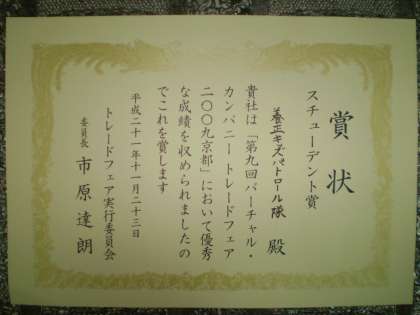 賞状
スチューデント賞
養正キッズパトロール隊 殿
貴社は「第九回バーチャル・
カンパニー トレードフェア
二〇〇九京都」において優秀
な成績を収められましたの
でこれを賞します
平成二十一年十一月二十三日
トレードフェア実行委員会
委員長 市原達朗